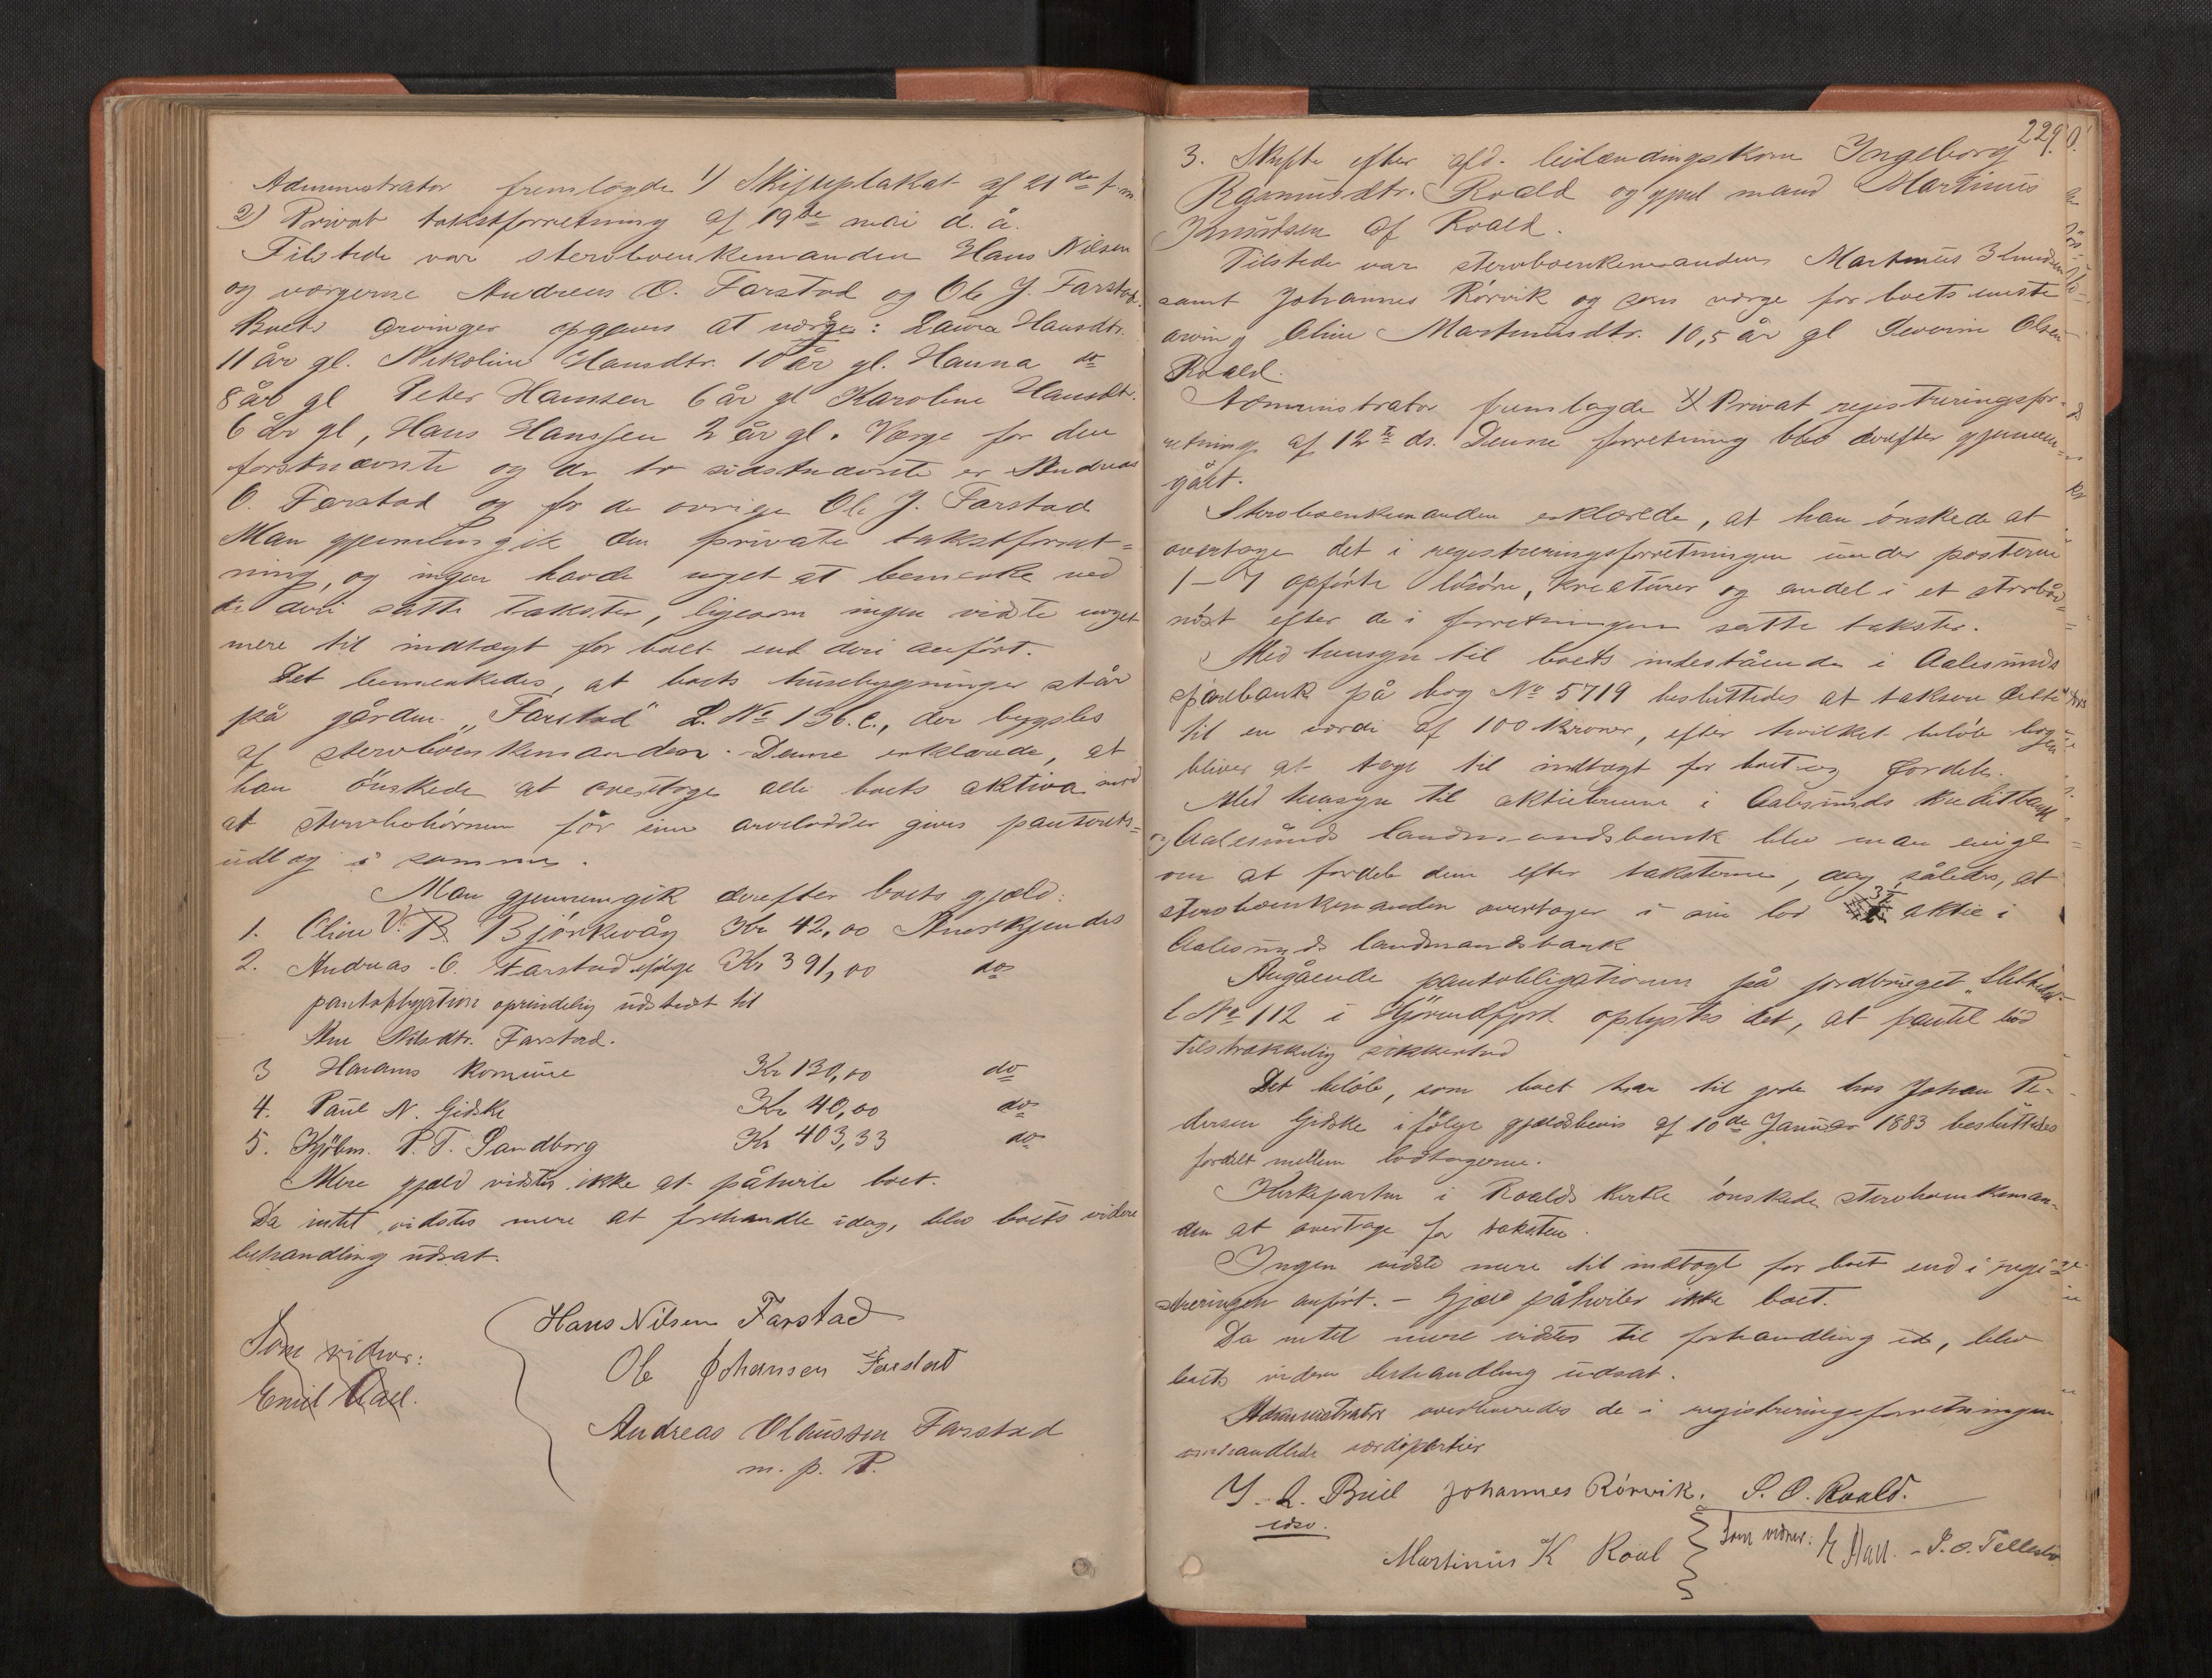 Administrator fremlagde 1) Skifteplakat af 21de f.m.
2) Privat takstforretning af 19de mai d. å.
Tilstede var sterboenkemanden Hans Nilsen
og værgerne Andreas O. Farstad og Ole J. Farstad.
Boets arvinger opgaves at være: Laura Hansdtr.
11 år gl. Nikoline Hansdtr. 10 år gl. Hanna do
8 år gl Peter Hansen 6 år gl Karoline Hansdtr.
6 år gl, Hans Hanssen 2 år gl. Værge for den
førstnævnte og de to sidstnævnte er Andreas
O. Farstad og for de øvrige Ole J. Farstad
Man gjennemgik den private takstforret=
ning, og ingen havde noget at bemerke ved
de deri satte takster, ligesom ingen vidste noget
mere til indtægt for boet end deri anført.
Det bemerkedes, at boets husebygninger står
på gården "Farstad" L. No 136.c., der bygsles
af sterboenkemanden. Denne erklærede, at
han ønskede at overtage alle boets aktiva mod
at sterbobørnene får sine arvelodder gives panterets=
udlæg i samme.
Man gjennemgik derefter boets gjæld:
1. Oline V. Bjørkevåg Kr 42,00 Anerkjendes
2. Andreas O. Farstad ifølge Kr 391,00 do
pantobligation oprindelig udstedt til
Ane Nilsdtr. Farstad.
3 Harams kommune Kr 130,00 do
4. Paul N. Gidske Kr 40,00 do
5. Kjøbm. P. T. Sandborg Kr 403,33 do
Mere gjæld vidstes ikke at påhvile boet.
Da intet vidstes mere at forhandle idag, blev boets videre
behandling udsat.
Hans Nilsen Farstad
Som vidner:
Ole Johansen Farstad
Emil Aall.
Andreas Olaussen Farstad
m. p. P.
229.
3. Skifte efter afd. leilændingskone Ingeborg
Rasmusdtr. Roald og gjenl mand Martinus
Knudsen af Roald.
Tilstede var sterboenkemanden Martinus Knudsen
samt Johannes Rørvik og som værge for boets eneste
arving Oline Martinusdtr. 10,5 år gl Severin Olsen
Roald.
Administrator fremlagde 1) Privat registreringsfor-
retning af 12te ds. Denne forretning blev derefter gjennem-
gået.
Sterboenkemanden erklærede, at han ønskede at
overtage det i registreringsforretningen under posterne
1-7 opførte løsøre, kreaturer og andel i et storbåd=
nøst efter de i forretningen satte takster.
Med hensyn til boets indestående i Aalesunds
sparebank på bog No 5719 besluttedes at taksere dette
til en værdi af 100 kroner, efter hvilket beløb bogen
bliver at tage til indtægt for boet og fordeles.
Med hensyn til aktiebrevene i Aalesunds kreditbank
og Aalesunds landmandsbank blev man enige
om at fordele dem efter taksterne, dog således, at
sterboenkemanden overtager i sin lod 3/2 aktie i
Aalesunds landmandsbank
Angående pantobligationen på jordbruget
l No 112 i Hjørendfjord oplystes det, at pantet bød
tilstrækkelig sikkerhed
Det beløb, som boet har til gode hos Johan Pe-
dersen Gidske ifølge gjældsbevis af 10de Januar 1883 besluttedes
fordelt mellem lodtagerne.
Kirkeparten i Roalds kirke ønskede sterboenkeman-
den at overtage for taksten.
Ingen vidste mere til indtægt for boet end i regi=
streringen anført. - Gjæld påhviler ikke boet.
Da intet mere vidstes til forhandling id, blev
boets videre behandling udsat.
Administrator overleveredes de i registreringsforretningen
omhandlede værdipapirer
J. L. Buel Johannes Rørvik. S. O. Roald.
edsv.
Martinus K Roal
Som vidner: E Aall. - P. O. Tellesbø